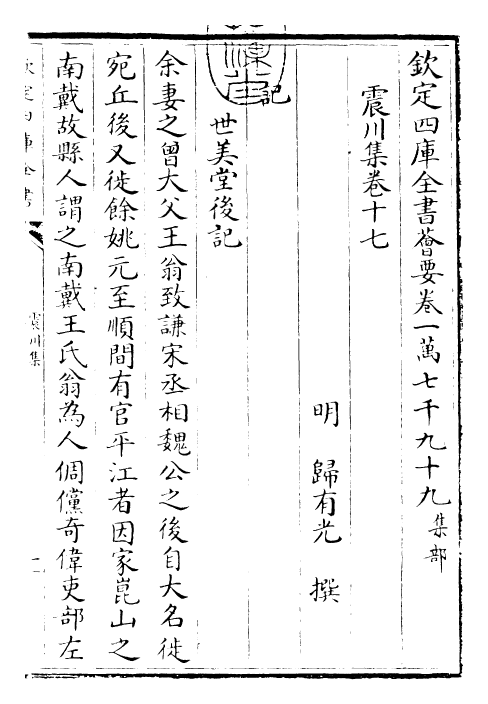 欽定四庫全書薈要卷一萬七千九十九集部
震川集卷十七
明 歸有光 撰
記
世美堂後記
余妻之曾大父王翁致謙宋丞相魏公之後自大名徙
宛丘後又徙餘姚元至順間有官平江者因家崑山之
南戴故縣人謂之南戴王氏翁為人倜儻奇偉吏部左
欽定四庫全書
震川集
一